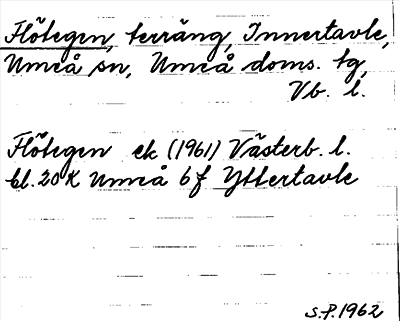 Flötegen, terräng, Innertavle,
Umeå sn, Umeå doms. tg,
Vb. l.
Flötegen ek (1961) Västerb. l.
bl. 20 K Umeå 6f Yttertavle
S.P. 1962